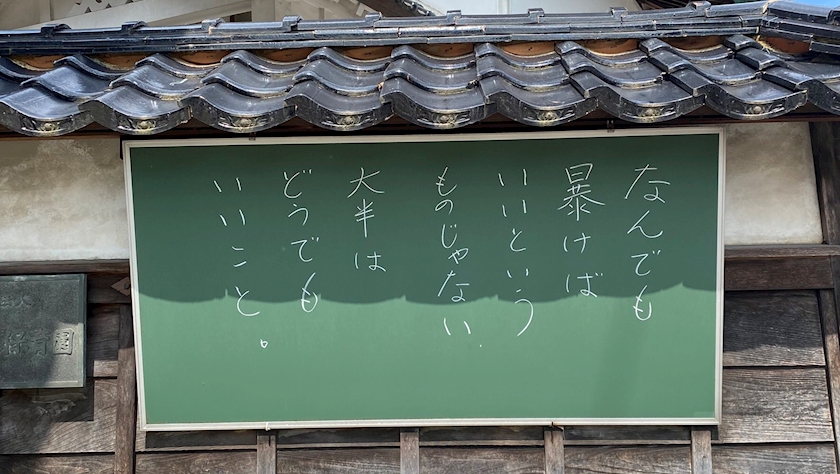 なんでも
暴けば
いいという
ものじゃない.
大半は
どうでも
いいこと。
育園